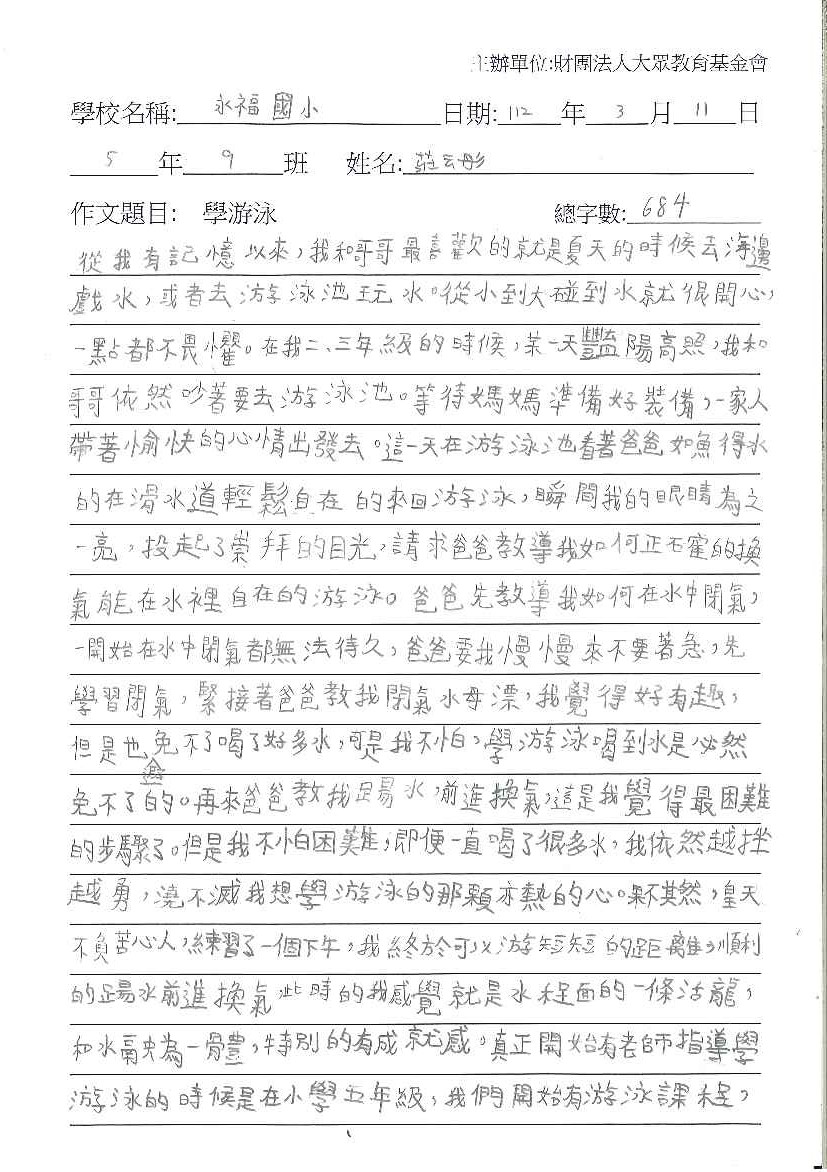 主辦單位:財團法人大眾教育基金會
學校名稱: 永福國小 日期: 112 年 3 月 11 日
5 年 9 班 姓名: 莊云彤
作文題目: 學游泳 總字數: 684
從我有記憶以來,我和哥哥最喜歡的就是夏天的時候去海邊
戲水,或者去游泳池玩水。從小到大碰到水就很開心,
一點都不畏懼。在我二、三年級的時候,某一天豔陽高照,我和
哥哥依然吵著要去游泳池。等待媽媽準備好裝備,一家人
帶著愉快的心情出發去。這一天在游泳池看著爸爸如魚得水
的在滑水道輕鬆自在的來回游泳,瞬間我的眼睛為之
一亮,投起了崇拜的目光,請求爸爸教導我如何正確的換
氣能在水裡自在的游泳。爸爸先教導我如何在水中閉氣,
一開始在水中閉氣都無法待久,爸爸要我慢慢來不要著急,先
學習閉氣,緊接著爸爸教我閉氣水母漂,我覺得好有趣,
但是也免不了喝了好多水,可是我不怕,學游泳喝到水是必然
避
免不了的。再來爸爸教我踢水,前進換氣,這是我覺得最困難
的步驟了。但是我不怕困難,即便一直喝了很多水,我依然越挫
越勇,澆不滅我想學游泳的那顆赤熱的心。果不其然,皇天
不負苦心人,練習了一個下午,我終於可以游短短的距離,順利
的踢水前進換氣,此時的我感覺就是水裡面的一條活龍,
和水融為一體,特別的有成就感。真正開始有老師指導學
游泳的時候是在小學五年級,我們開始有游泳課程,